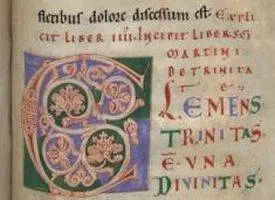 flictibus dolore discessum est. Expli
cit liber iiii. Incipit liber sci
martini
de trinita
te
CLEMENS
TRINITAS·
E· VNA
DIVINITAS·